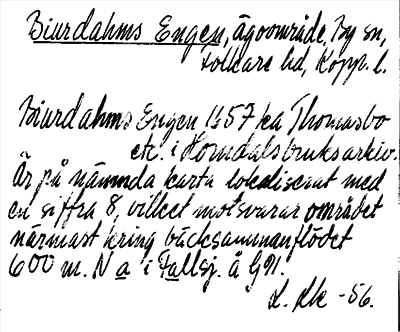 Biurdahms Engen, ägoområde, By sn,
Folkare hd, Kopp. l.
Biurdahms Engen 1657 ka Thomasbo
etc. i Horndals bruksarkiv.
Är på nämnda karta lokaliserat med
en siffra 8, vilket motsvarar området
närmast kring bäcksammanflödet
600 m. N a i Fallsj. å GK.